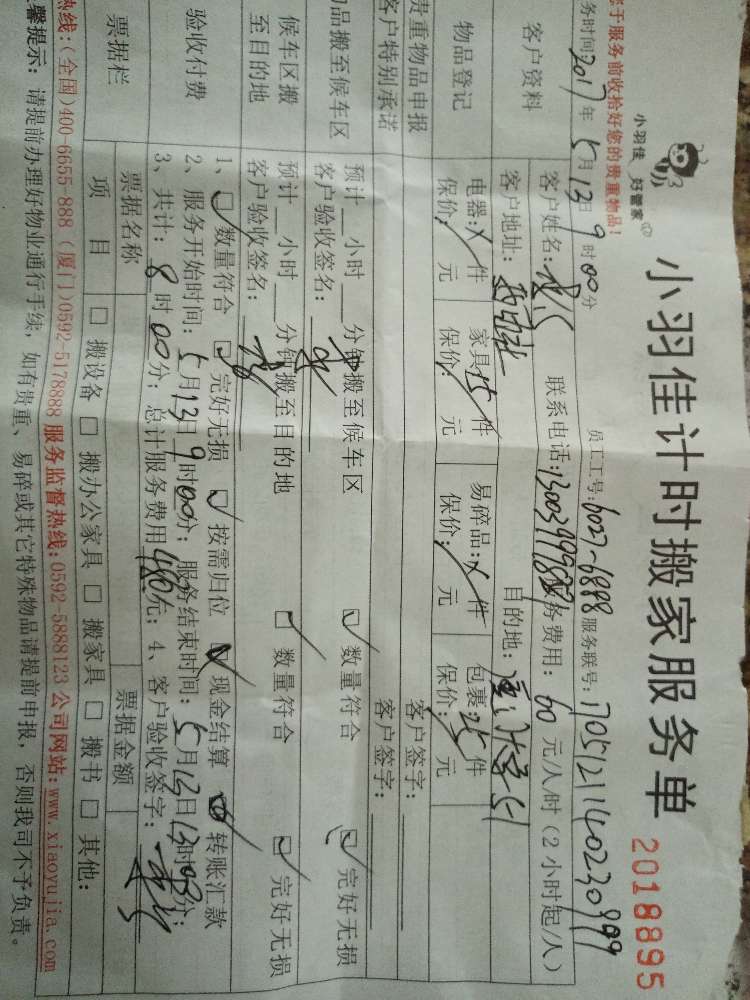 小羽佳 好管家
小羽佳计时搬家服务单
2018895
您于服务前收拾好您的贵重物品!
员工工号: 6027-6888 服务联号: 170512114022309999
务时间2017年5月12日9时00分
客户资料
客户姓名: 联系电话: 服务费用: 60 元/人/时 (2小时起/人)
客户地址: 目的地:
物品登记
电器: 件 家具 25 件 易碎品: 件 包裹 25 件
保价: 元 保价: 元 保价: 元 保价: 元
贵重物品申报 客户签字:
客户特别承诺 客户签字:
物品搬至候车区
预计 小时 分钟搬至候车区 数量符合 完好无损
客户验收签名:
候车区搬至目的地
预计 小时 分钟搬至目的地 数量符合 完好无损
客户验收签名:
验收付费
1、 数量符合 完好无损 按需归位 现金结算 转账汇款
2、服务开始时间: 5月13日9时00分; 服务结束时间: 5月13日13时00分;
3、共计: 8时00分; 总计服务费用480元; 4、客户验收签字:
票据栏
票据名称 票据金额
项目 □ 搬设备 □ 搬办公家具 □ 搬家具 □ 搬书 □ 其他:
热线: (全国)400-6655-888 (厦门)0592-5178888 服务监督热线: 0592-5888123 公司网站: www.xiaoyujia.com
馨提示: 请提前办理好物业通行手续, 如有贵重、易碎或其它特殊物品请提前申报, 否则我司不予负责。